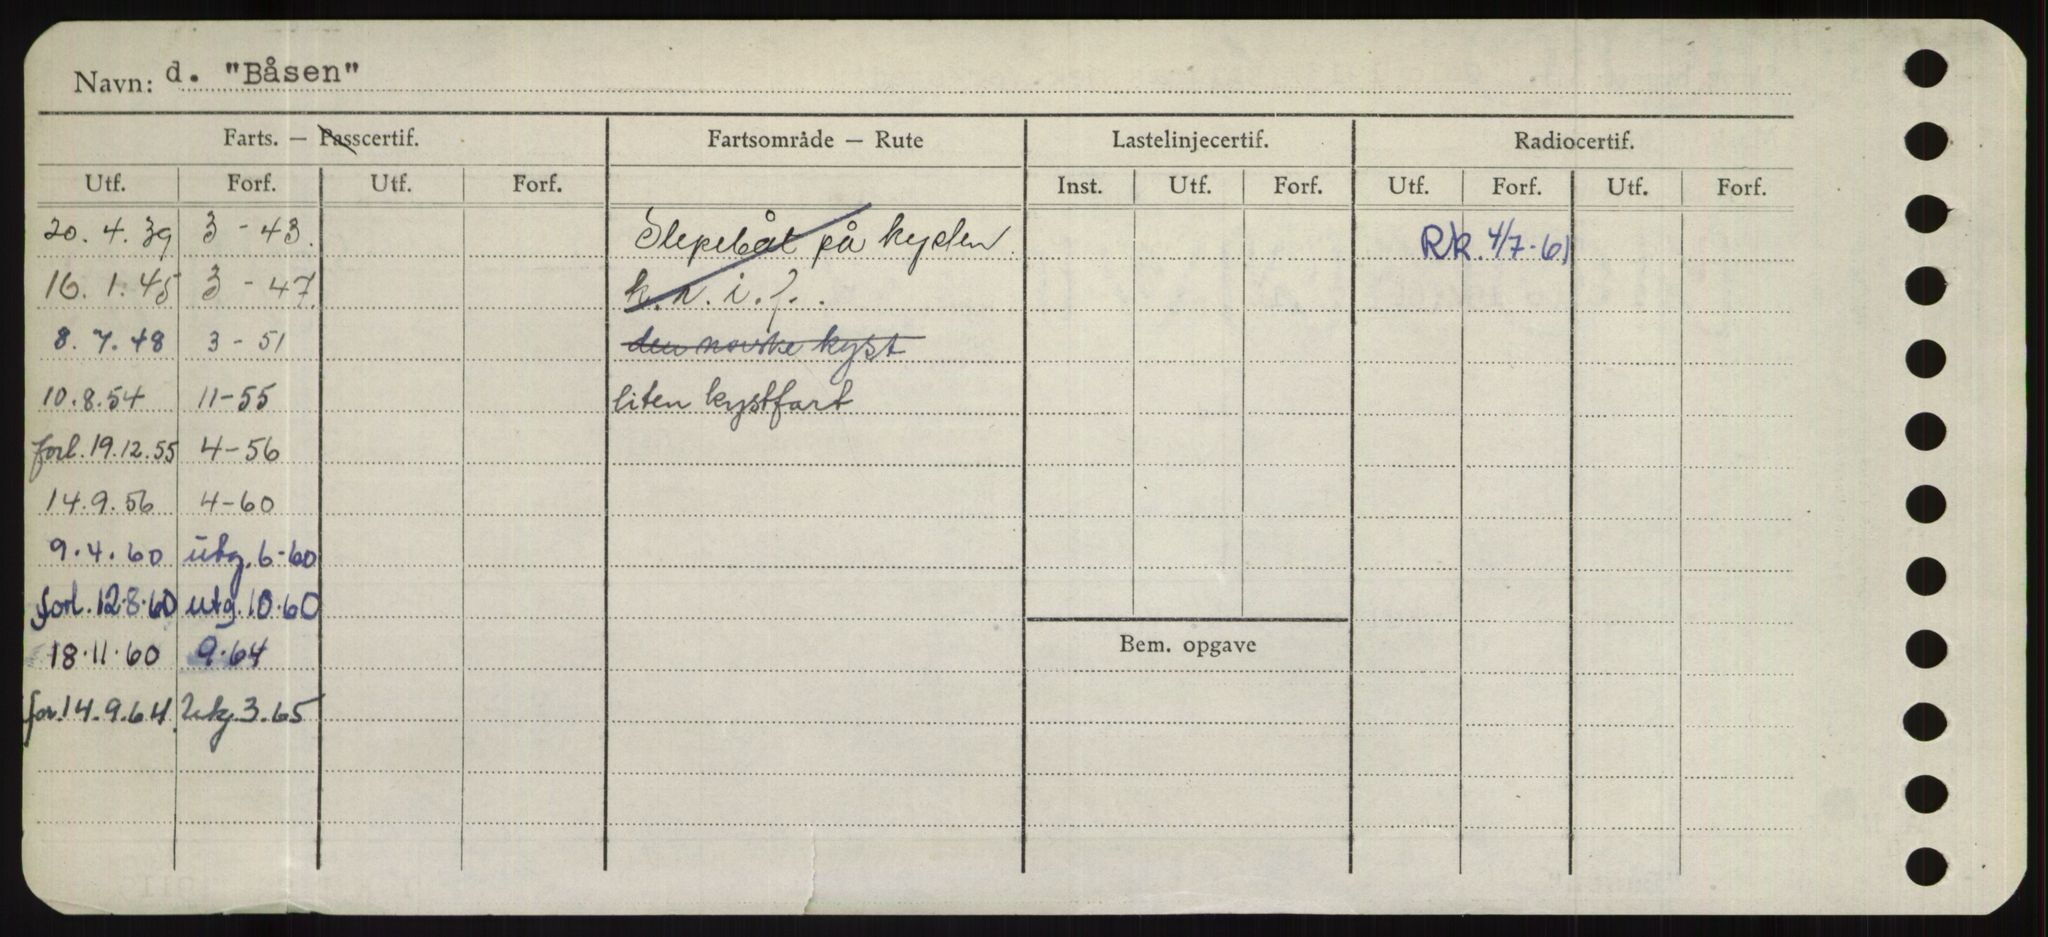 Navn: d. "Båsen"
Farts. — Passcertif. Fartsområde — Rute Lastelinjecertif. Radiocertif.
Utf. Forf. Utf. Forf. Inst. Utf. Forf. Utf. Forf. Utf. Forf.
20.4.39 3-43. Slepebåt på kysten. Rk. 4/7-61
16.1.45 3-47. k.n.i.f..
8.7.48 3-51 den norske kyst
10.8.54 11-55 liten kystfart
forl.19.12.55 4-56
14.9.56 4-60
9.4.60 utg.6-60
forl.12.8.60 utg.10.60
18.11.60 9.64
Bem. opgave
for.14.9.64. Utg.3.65